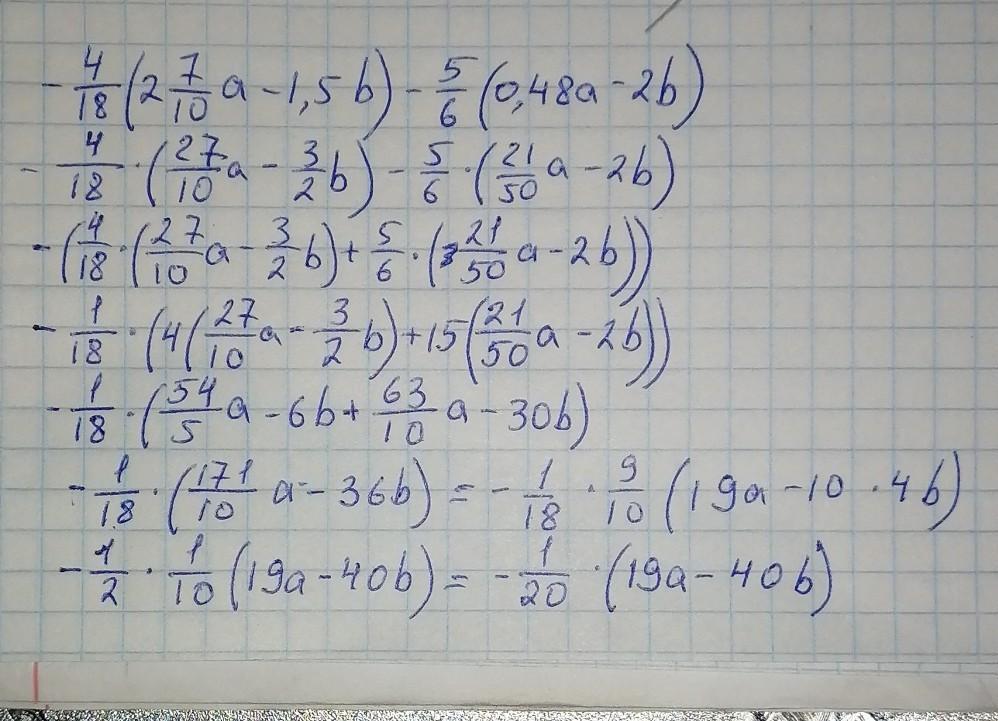 - 4/18 (2 7/10 a - 1,5 b) - 5/6 (0,48a - 2b)
- 4/18 · (27/10 a - 3/2 b) - 5/6 · (21/50 a - 2b)
- (4/18 · (27/10 a - 3/2 b) + 5/6 · (21/50 a - 2b))
- 1/18 · (4(27/10 a - 3/2 b) + 15(21/50 a - 2b))
- 1/18 · (54/5 a - 6b + 63/10 a - 30b)
- 1/18 · (171/10 a - 36b) = - 1/18 · 9/10 (19a - 10 · 4b)
- 1/2 · 1/10 (19a - 40b) = - 1/20 · (19a - 40b)